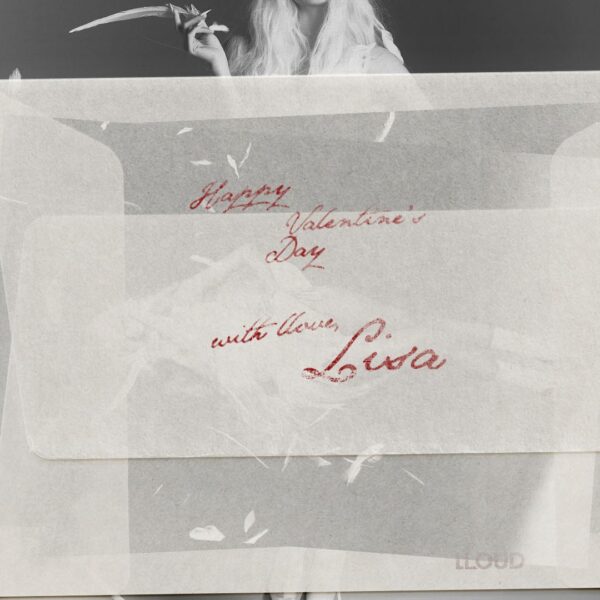 Happy
Valentine's
Day
with llove,
Lisa
LLOUD